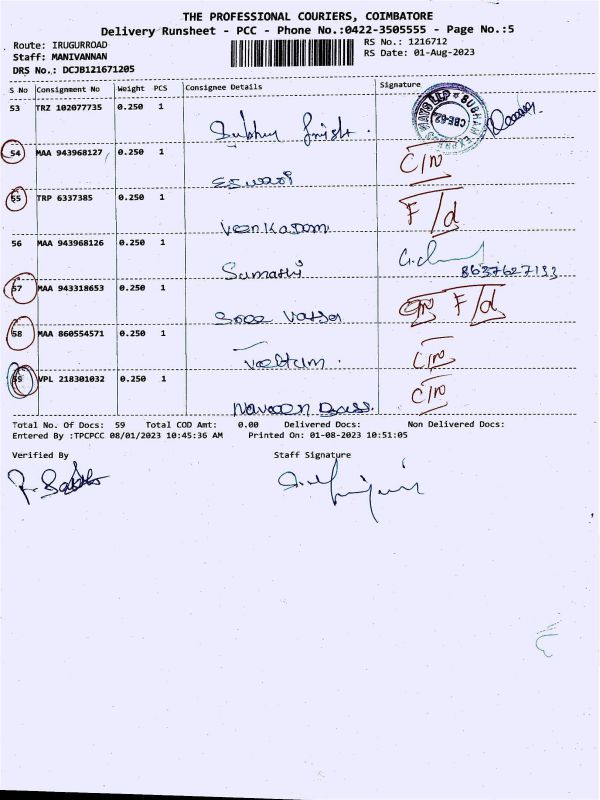 THE PROFESSIONAL COURIERS, COIMBATORE
Delivery Runsheet - PCC - Phone No.:0422-3505555 - Page No.:5
Route: IRUGURROAD RS No.: 1216712
Staff: MANIVANNAN RS Date: 01-Aug-2023
DRS No.: DCJB121671205
S No Consignment No Weight PCS Consignee Details Signature
53 TRZ 102077735 0.250 1
54 MAA 943968127 0.250 1 C/n
55 TRP 6337385 0.250 1 F/d
56 MAA 943968126 0.250 1 Sumathi
8637627133
57 MAA 943318653 0.250 1 F/d
58 MAA 860554571 0.250 1 C/n
59 VPL 218301032 0.250 1 C/n
Total No. Of Docs: 59 Total COD Amt: 0.00 Delivered Docs: Non Delivered Docs:
Entered By :TPCPCC 08/01/2023 10:45:36 AM Printed On: 01-08-2023 10:51:05
Verified By Staff Signature